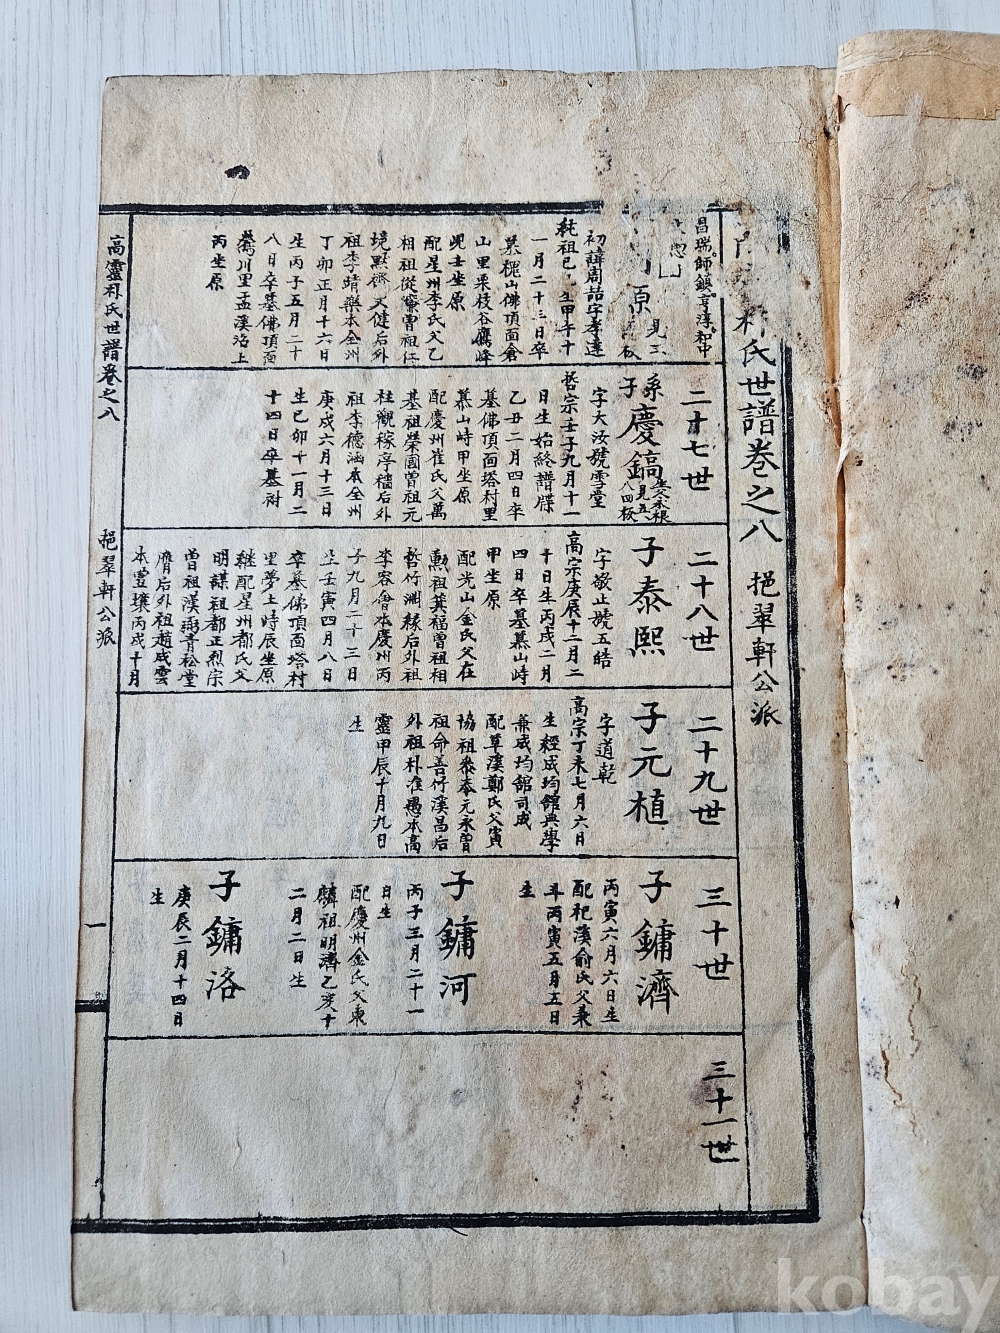 朴氏世譜卷之八 挹翠軒公派
昌瑞師鎭亨淳和中
原
見三
板
初諱周喆字孝達
純祖己 生甲午十
一月二十三日卒
墓槐山佛頂面倉
山里栗枝谷鷹峰
峴壬坐原
配星州李氏父乙
相祖從 曾祖仁
境黙齋文健后外
祖李靖樂本全州
丁卯正月十六日
生丙子五月二十
八日卒墓佛頂面
鷺川里孟溪洛上
丙坐原
二十七世
系
子慶鎬
生父永根
見五
八四板
字大汝號雪堂
哲宗壬子九月十一
日生始終譜牒
乙丑二月四日卒
墓佛頂面塔村里
慕山峙甲坐原
配慶州崔氏父萬
基祖榮國曾祖元
柱觀稼亭 后外
祖李德涵本全州
庚戌六月十三日
生己卯十一月二
十四日卒墓祔
二十八世
子泰熙
字敬止號五皓
高宗庚辰十二月二
十日生丙戌二月
四日卒墓慕山峙
甲坐原
配光山金氏父在
勳祖箕福曾祖相
哲竹淵 后外祖
李容會本慶州丙
子九月二十三日
生壬寅四月八日
卒墓佛頂面塔村
里夢土峙辰坐原
繼配星州都氏父
明謀祖都正烈宗
曾祖漢 靑松堂
膺后外祖趙成雲
本豊壤丙戌十月
二十九世
子元植
字道乾
高宗丁未七月六日
生經成均館典學
兼成均館司成
配草溪鄭氏父寅
協祖叅奉元永曾
祖命善竹溪昌后
外祖朴准愚本高
靈甲辰十月九日
生
三十世
子鏞濟
丙寅六月六日生
配杞溪俞氏父兼
斗丙寅五月五日
生
子鏞河
丙子三月二十一
日生
配慶州金氏父東
麟祖明濟乙亥十
二月二日生
子鏞洛
庚辰二月十四日
生
三十一世
高靈朴氏世譜卷之八 挹翠軒公派 一
kobay